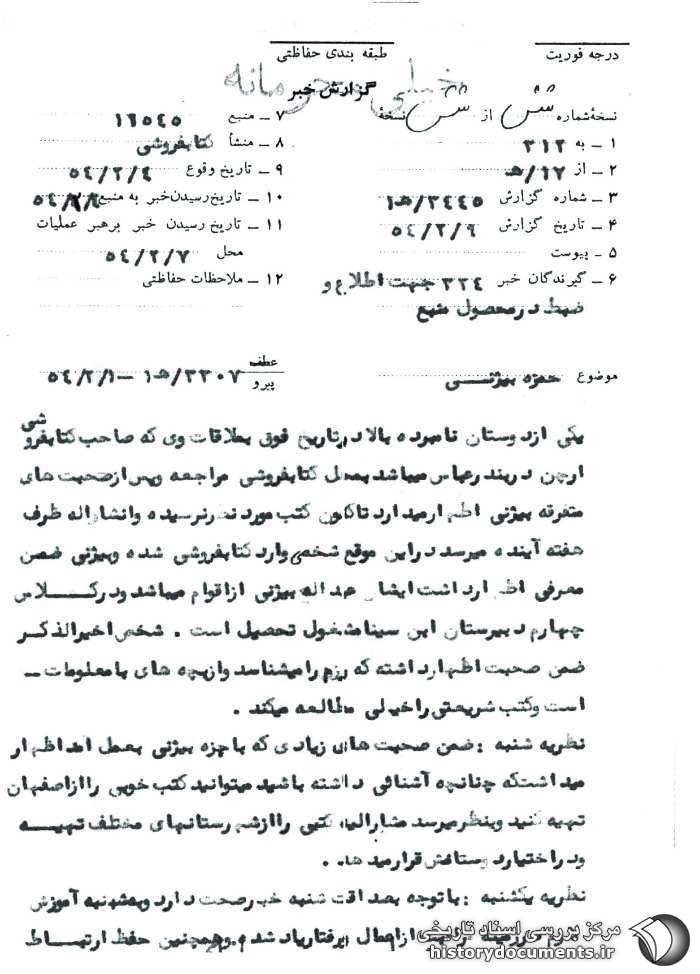 درجه فوریت
طبقه بندی حفاظتی
خیلی محرمانه
گزارش خبر
نسخهٔ شماره شش از شش نسخهٔ
۱ ــ به ۳۱۲
۲ ــ از ۱۷/ﻫ
۳ ــ شماره گزارش ۳۴۴۵/ﻫ۱
۴ ــ تاریخ گزارش ۵۴/۲/۹
۵ ــ پیوست
۶ ــ گیرندگان خبر ۳۳۴ جهت اطلاع و
ضبط در محصول منبع
۷ ــ منبع ۱۲۵۴۵
۸ ــ منشأ کتابفروشی
۹ ــ تاریخ وقوع ۵۴/۲/۴
۱۰ ــ تاریخ رسیدن خبر به منبع
۱۱ ــ تاریخ رسیدن خبر برهبر عملیات
محل ۵۴/۲/۷
۱۲ ــ ملاحظات حفاظتی
موضوع حمزه بیژنی
عطف
پیرو ۳۳۰۷/ﻫ۱ ــ ۵۴/۲/۱
یکی از دوستان نامبرده بالا در تاریخ فوق بملاقات وی که صاحب کتابفروشی
ارجن در بندرعباس میباشد بمحل کتابفروشی مراجعه وپس از صحبت های
متفرقه بیژنی اظهار میدارد تاکنون کتب مورد نظر نرسیده وانشااله ظرف
هفته آینده میرسد در این موقع شخصی وارد کتابفروشی شده وبیژنی ضمن
معرفی اظهار داشت ایشان عبداله بیژنی از اقوام میباشد ودر کلاس
چهارم دبیرستان ابن سینا مشغول تحصیل است . شخص اخیرالذکر
ضمن صحبت اظهار داشته که رزم را میشناسد واز بچه های با معلومات ــ
است وکتب شریعتی را خیلی مطالعه میکند .
نظریه شنبه : ضمن صحبت های زیادی که با حمزه بیژنی بعمل آمد اظهار
میداشت که چنانچه آشنائی داشته باشید میتوانید کتب خوبی را از اصفهان
تهیه کنید وبنظر میرسد مشارالیه کتبی را از شهرستانهای مختلف تهیه
ودر اختیار دوستانش قرار میدهد .
نظریه یکشنبه : با توجه بصداقت شنبه خبر صحت دارد وبه شنبه آموزش
لازم در زمینه از اعمال ورفتار یاد شده وهمچنین حفظ ارتباط
مرکز بررسی اسناد تاریخی
historydocuments.ir